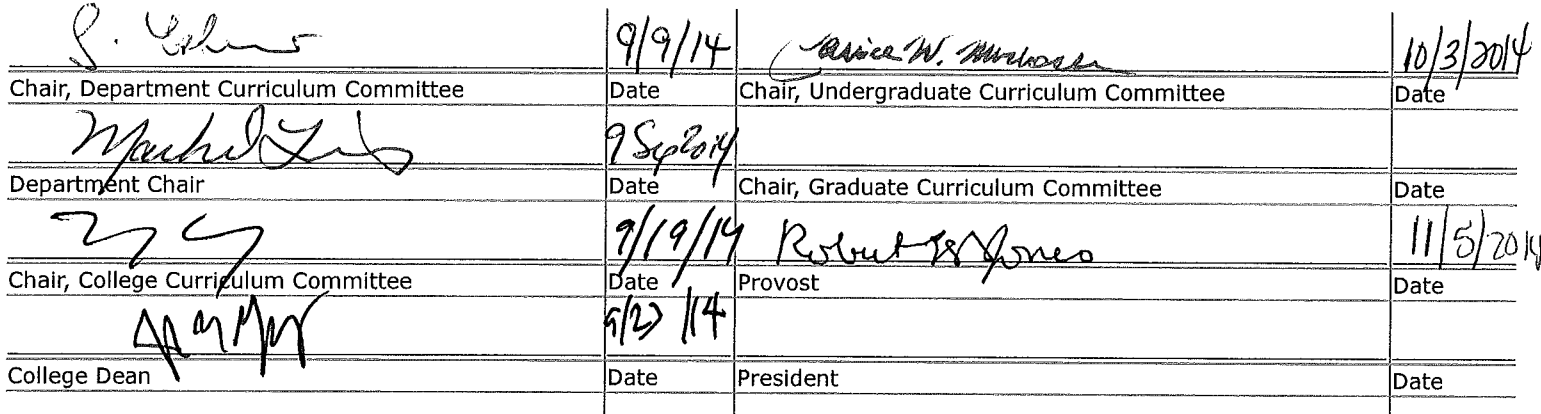 9/9/14 10/3/2014
Chair, Department Curriculum Committee Date Chair, Undergraduate Curriculum Committee Date
9 Sep 2014
Department Chair Date Chair, Graduate Curriculum Committee Date
9/19/14 Robert W Jones 11/5/2014
Chair, College Curriculum Committee Date Provost Date
College Dean Date President Date